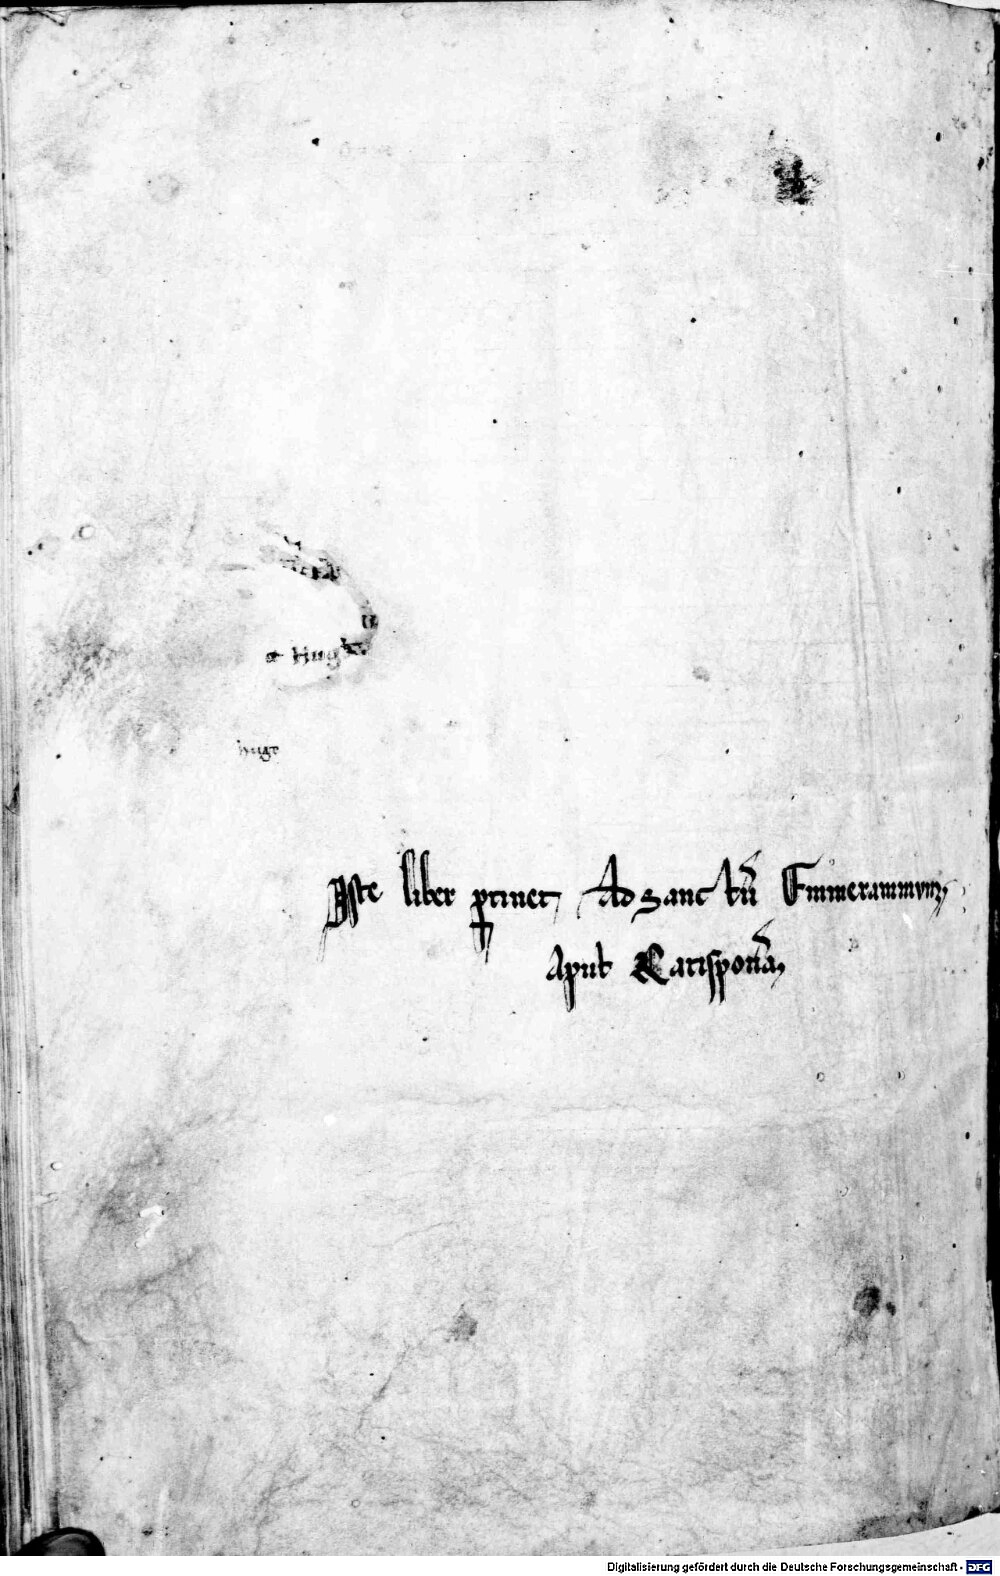 et hugo
hugo
Iste liber ꝑtinet Ad Sanctū Emmerammvm
Apud Ratisponā
Digitalisierung gefördert durch die Deutsche Forschungsgemeinschaft - DFG